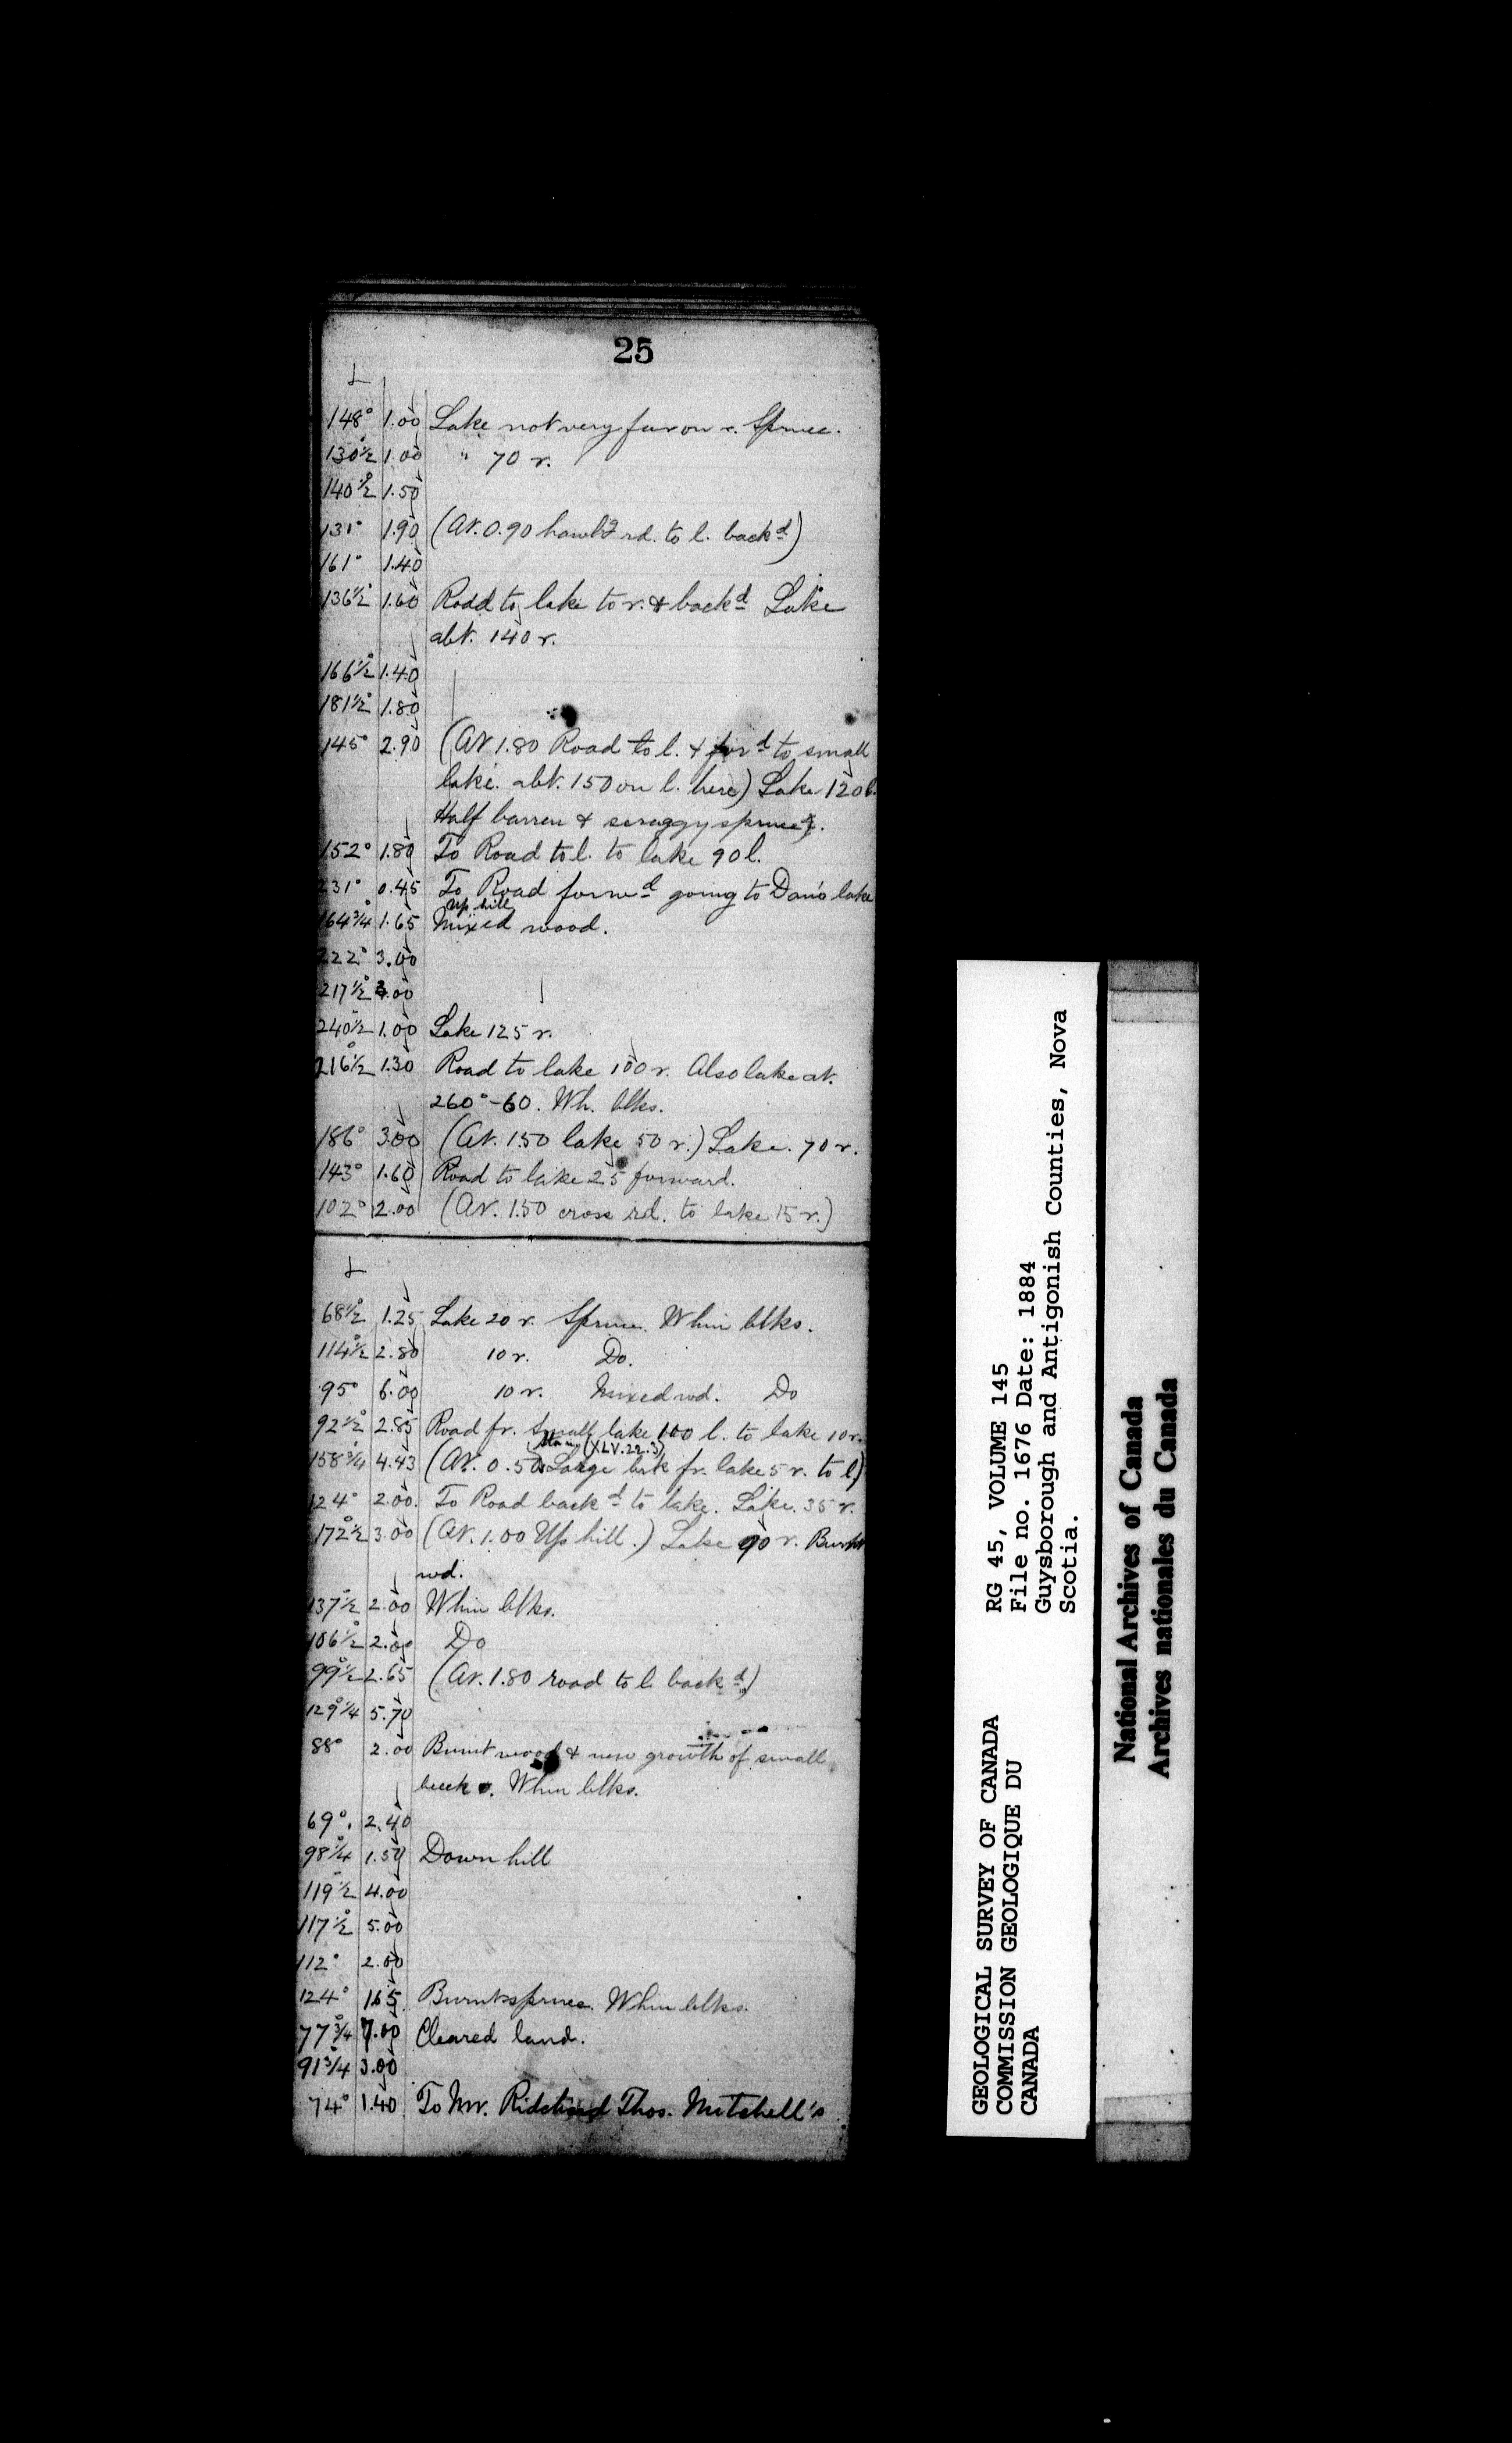 25
L
148° 1.00 Lake not very far on r. Spruce.
130½° 1.00 " 70 r.
140½° 1.50
131° 1.90 (At 0.90 haulg rd. to l. backd)
161° 1.40
136½° 1.60 Road to lake to r. & backd Lake
abt. 140 r.
166½° 1.40
181½° 1.80
145° 2.90 (At 1.80 Road to l. & ford to small
lake. abt. 150 on l. here) Lake 120 l.
Half barren & scraggy spruce.
152° 1.80 To Road to l. to lake 90 l.
231° 0.45 To Road forwd going to Dan's lake
up hill
164¾° 1.65 Mixed wood.
222° 3.00
217½° 3.00
240½° 1.00 Lake 125 r.
216½° 1.30 Road to lake 100 r. Also lake at
260°-60. Wh. blks.
186° 3.00 (At 1.50 lake 50 r.) Lake 70 r.
143° 1.60 Road to lake 25 forward.
102° 2.00 (At 1.50 cross rd. to lake 15 r.)
L
68½° 1.25 Lake 20 r. Spruce. Whin blks.
114½° 2.80 10 r. Do.
95° 6.00 10 r. Mixed wd. Do
92½° 2.85 Road fr. small lake 100 l. to lake 10 r.
(XLV.22.3)
158¾° 4.43 (At 0.50 Large bk fr. lake 5 r. to l.)
124° 2.00 To Road backd to lake. Lake 35 r.
172½° 3.00 (At 1.00 Up hill.) Lake 90 r. Burnt
wd.
137½° 2.00 Whin blks.
106½° 2.00 Do
99½° 2.65 (At 1.80 road to l. backd)
129¼° 5.70
88° 2.00 Burnt wood & new growth of small
beech. Whin blks.
69° 2.40
98¼° 1.50 Down hill
119½° 4.00
117½° 5.00
112° 2.00
124° 1.65 Burnt spruce. Whin blks.
77¾° 7.00 Cleared land.
91¾° 3.00
74° 1.40 To Mr. Thos. Mitchell's
GEOLOGICAL SURVEY OF CANADA
COMMISSION GEOLOGIQUE DU
CANADA
RG 45, VOLUME 145
File no. 1676 Date: 1884
Guysborough and Antigonish Counties, Nova
Scotia.
National Archives of Canada
Archives nationales du Canada